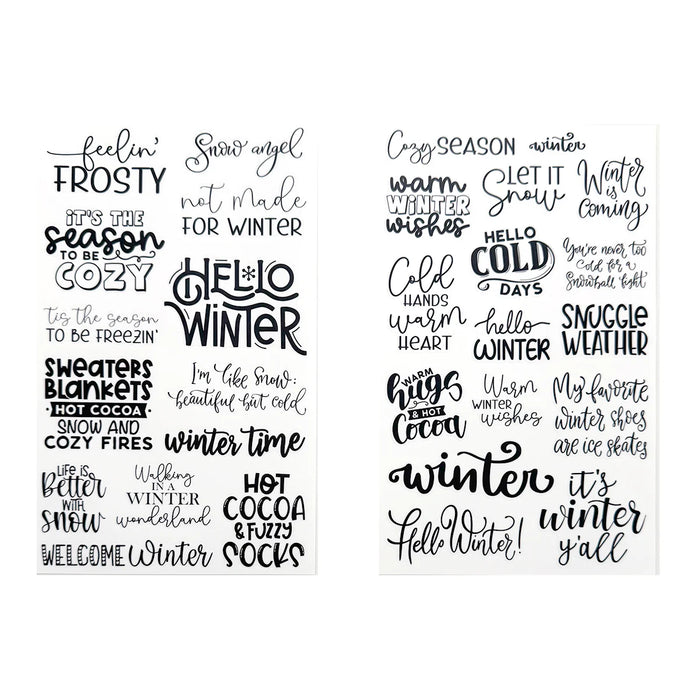 feelin'
FROSTY
Snow angel
not made
FOR WINTER
iT'S THE
season
TO BE
COZY
HELLO
WiNTER
'tis the season
TO BE FREEZIN'
SWEATERS
BLANKETS
HOT COCOA
SNOW AND
COZY FIRES
I'm like snow:
beautiful but cold
winter time
LiFE iS
Better
WITH
snow
Walking
IN A
WINTER
wonderland
HOT
COCOA
& FUZZY
SOCKS
WELCOME Winter
Cozy SEASON
winter
warm
WiNTER
wishes
LET IT
Snow
Winter
is
Coming
HELLO
COLD
DAYS
You're never too
Cold for a
Snowball fight
Cold
HANDS
warm
HEART
hello
WINTER
SNUGGLE
WEATHER
WARM
hugs
& HOT
Cocoa
Warm
WINTER
wishes
My favorite
winter shoes
are ice skates
winter
it's
winter
y'all
Hello Winter!